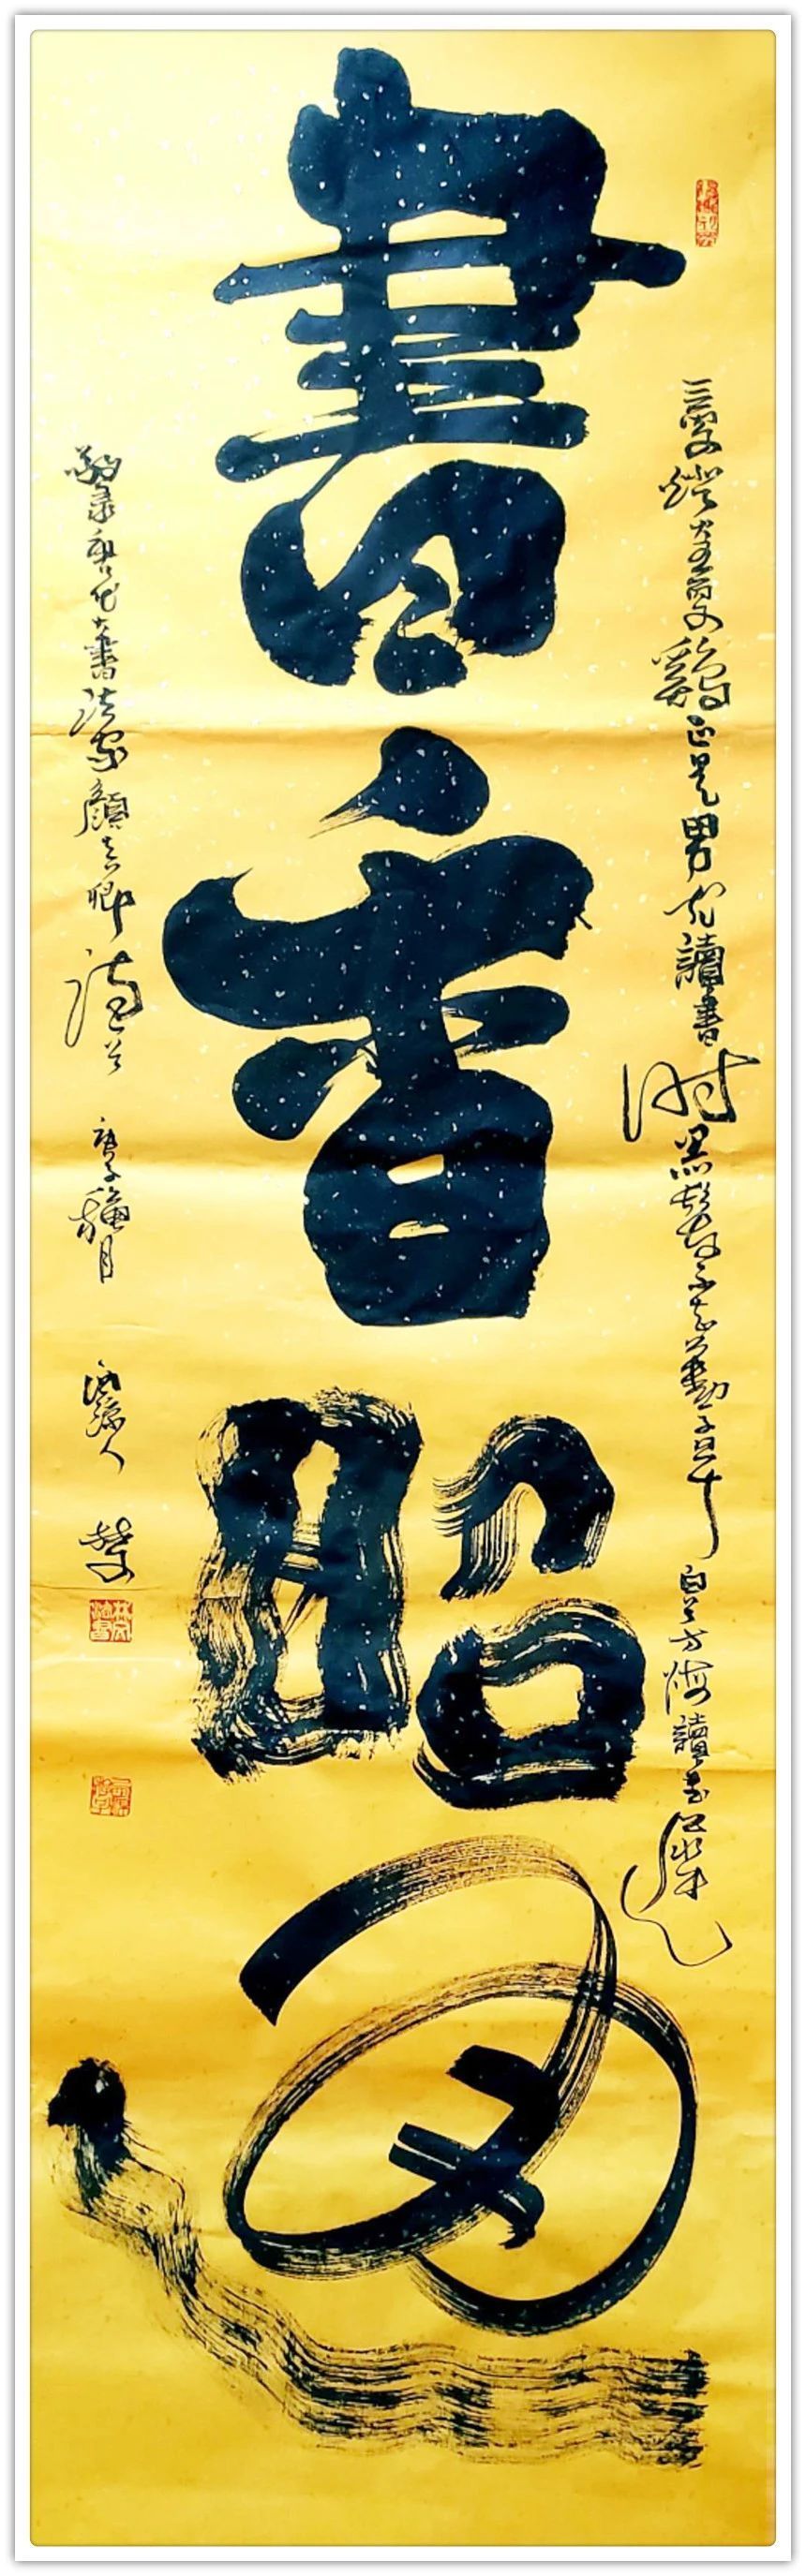 書香昭
三更燈火五更鷄正是男兒讀書時黑髮不知勤學早白首方悔讀書遲
敬录唐代大書法家顏真卿詩 庚子梅月 人